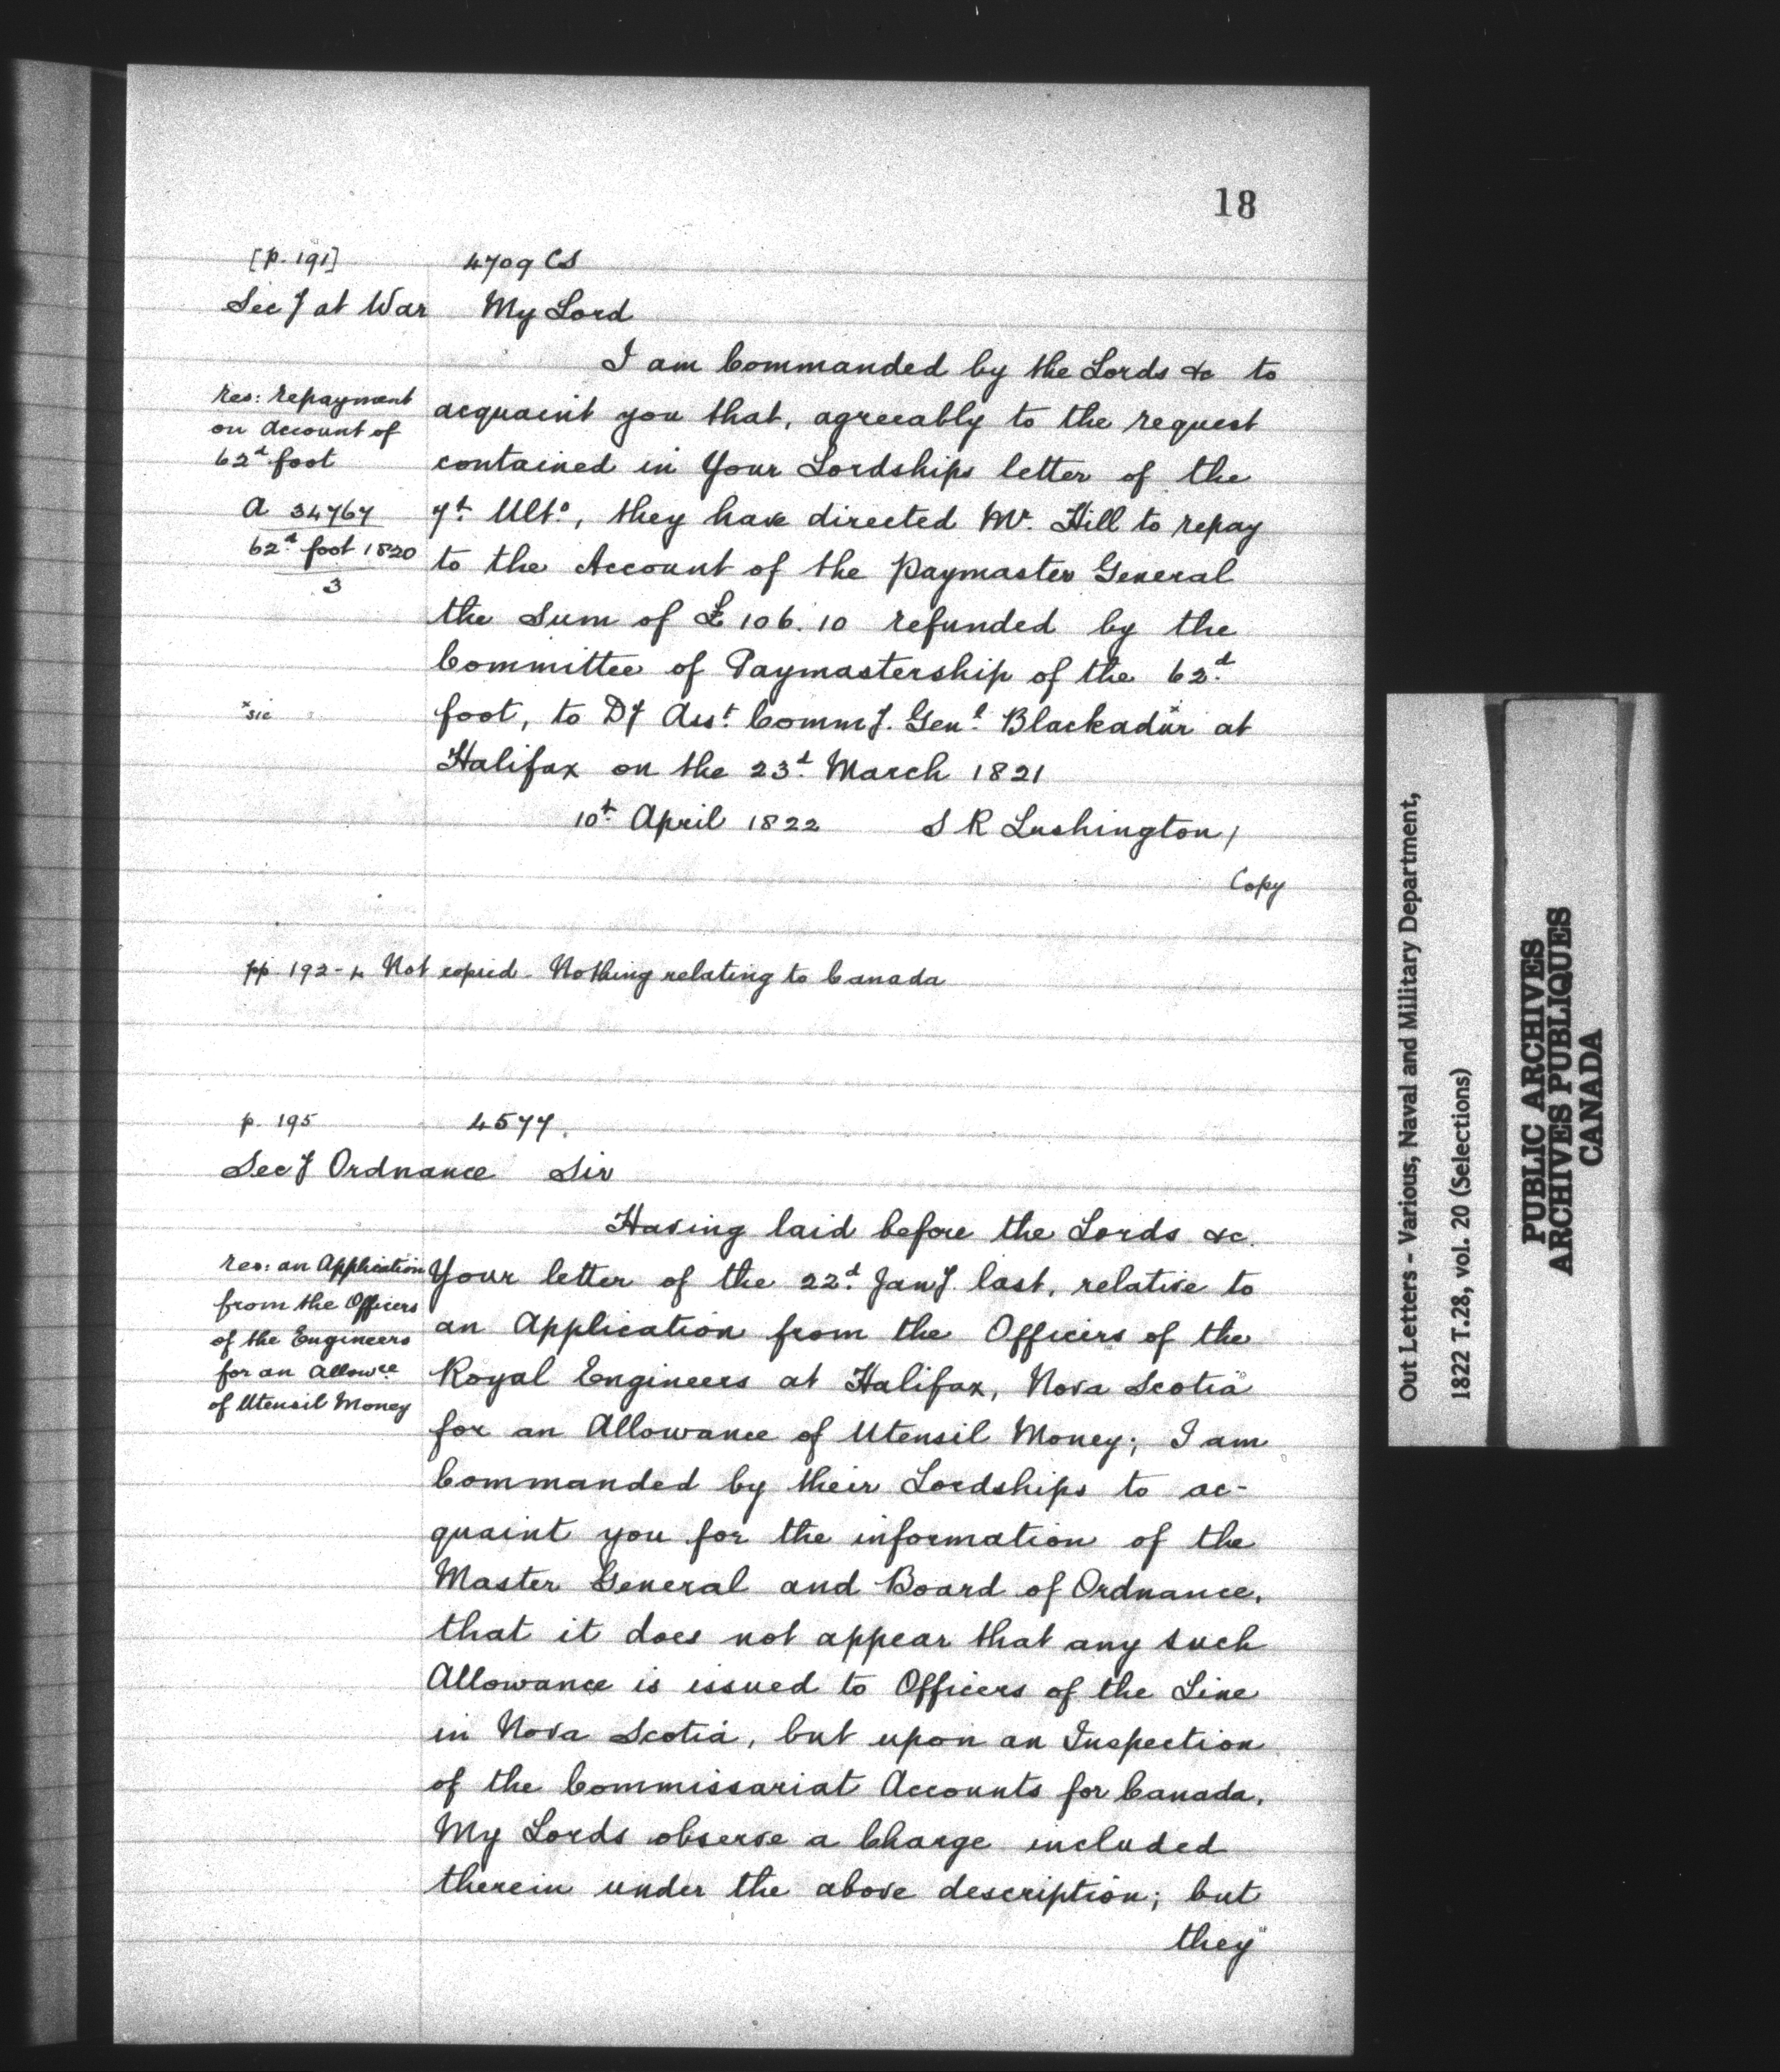 18
[p. 191] 4709 CS
Secy at War My Lord
I am Commanded by the Lords &c to
res: repayment
on Account of
62d foot
A 34767
62d foot 1820
3
acquaint you that, agreeably to the request
contained in Your Lordships letter of the
7th Ulto, they have directed Mr. Hill to repay
to the Account of the Paymaster General
the Sum of £106.10 refunded by the
Committee of Paymastership of the 62d
xsic
foot, to Dy Asst Commy. Genl Blackadarx at
Halifax on the 23d March 1821
10th April 1822 S R Lushington /
Copy
pp 192-4 Not copied - Nothing relating to Canada
p. 195 4577.
Secy Ordnance Sir
Having laid before the Lords &c.
res: an Application
from the Officers
of the Engineers
for an Allowce
of Utensil Money
Your letter of the 22d Jany. last, relative to
an Application from the Officers of the
Royal Engineers at Halifax, Nova Scotia
for an Allowance of Utensil Money; I am
Commanded by their Lordships to ac-
quaint you for the information of the
Master General and Board of Ordnance,
that it does not appear that any such
Allowance is issued to Officers of the Line
in Nova Scotia, but upon an Inspection
of the Commissariat Accounts for Canada,
My Lords observe a Charge included
therein under the above description; but
they
Out Letters - Various, Naval and Military Department,
1822 T.28, vol. 20 (Selections)
PUBLIC ARCHIVES
ARCHIVES PUBLIQUES
CANADA